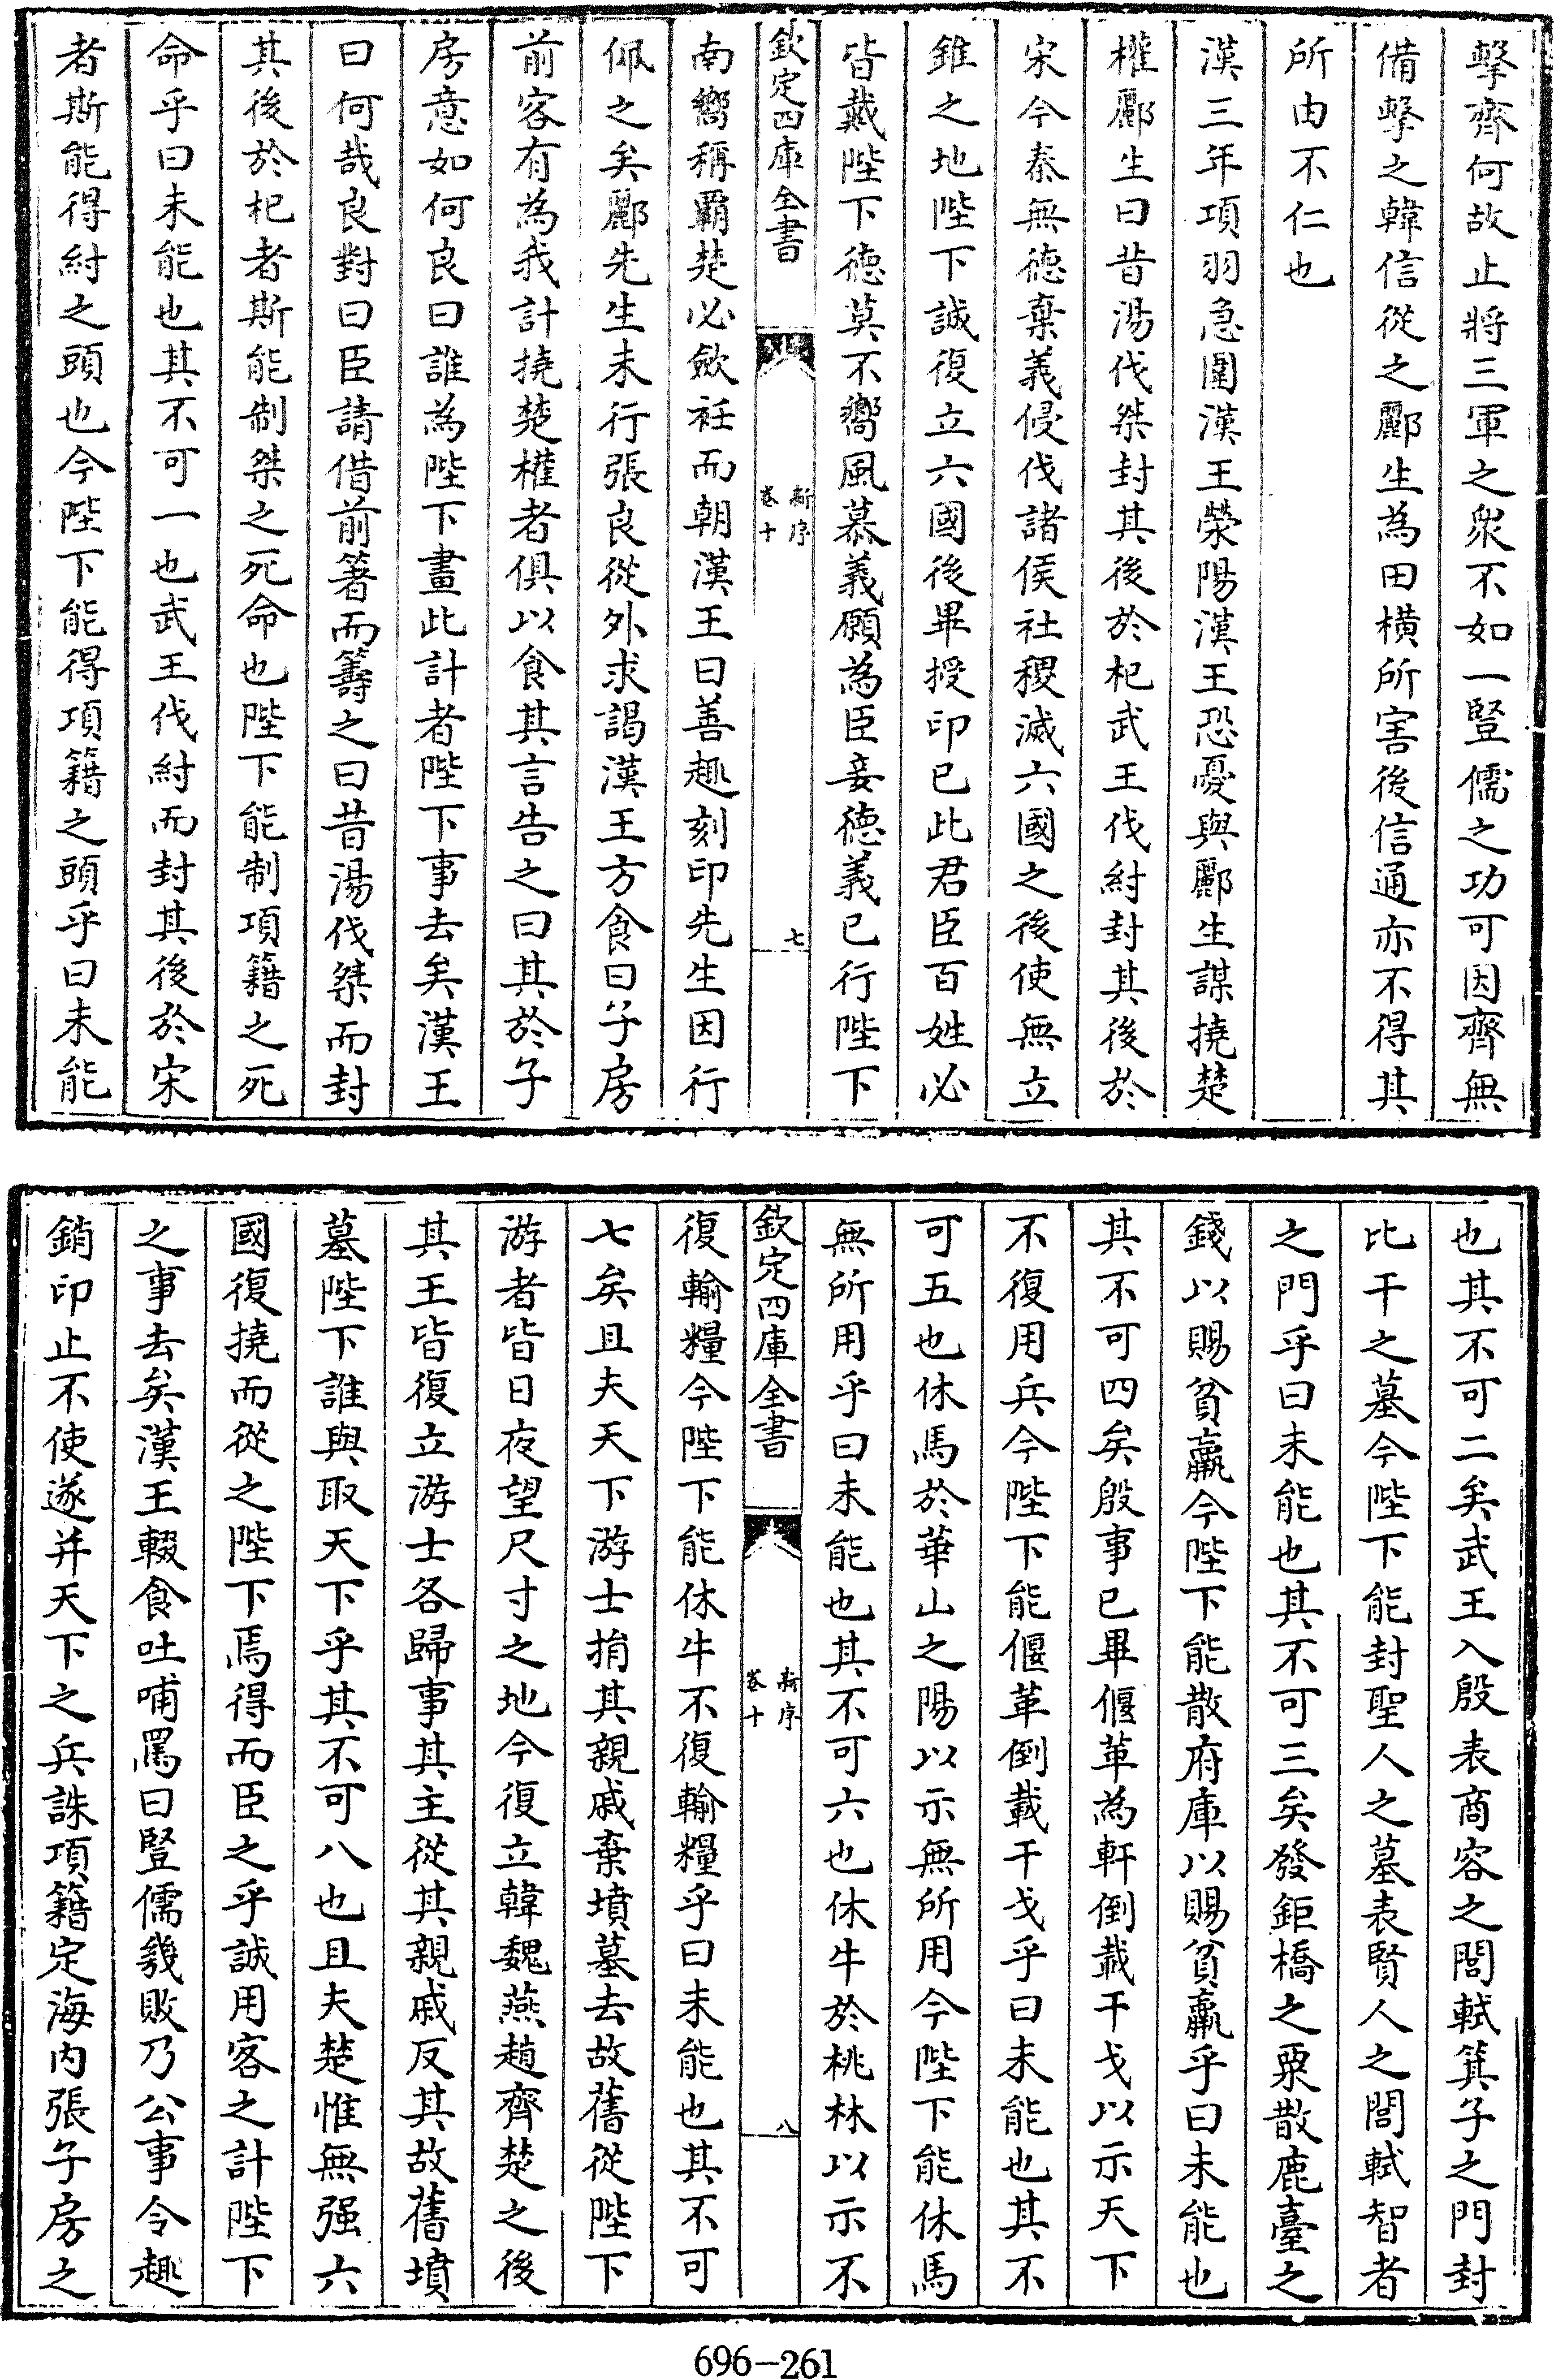 擊齊何故止將三軍之衆不如一豎儒之功可因齊無
備擊之韓信從之酈生為田橫所害後信通亦不得其
所由不仁也
漢三年項羽急圍漢王滎陽漢王恐憂與酈生謀撓楚
權酈生曰昔湯伐桀封其後於杞武王伐紂封其後於
宋今秦無德棄義侵伐諸侯社稷滅六國之後使無立
錐之地陛下誠復立六國後畢授印已此君臣百姓必
皆戴陛下德莫不嚮風慕義願為臣妾德義已行陛下
欽定四庫全書
新序
卷十
七
南嚮稱霸楚必斂衽而朝漢王曰善趣刻印先生因行
佩之矣酈先生未行張良從外求謁漢王方食曰子房
前客有為我計撓楚權者俱以食其言告之曰其於子
房意如何良曰誰為陛下畫此計者陛下事去矣漢王
曰何哉良對曰臣請借前箸而籌之曰昔湯伐桀而封
其後於杞者斯能制桀之死命也陛下能制項籍之死
命乎曰未能也其不可一也武王伐紂而封其後於宋
者斯能得紂之頭也今陛下能得項籍之頭乎曰未能
也其不可二矣武王入殷表商容之閭軾箕子之門封
比干之墓今陛下能封聖人之墓表賢人之閭軾智者
之門乎曰未能也其不可三矣發鉅橋之粟散鹿臺之
錢以賜貧羸今陛下能散府庫以賜貧羸乎曰未能也
其不可四矣殷事已畢偃革為軒倒載干戈以示天下
不復用兵今陛下能偃革倒載干戈乎曰未能也其不
可五也休馬於華山之陽以示無所用今陛下能休馬
無所用乎曰未能也其不可六也休牛於桃林以示不
欽定四庫全書
新序
卷十
八
復輸糧今陛下能休牛不復輸糧乎曰未能也其不可
七矣且夫天下游士捐其親戚棄墳墓去故舊從陛下
游者皆日夜望尺寸之地今復立韓魏燕趙齊楚之後
其王皆復立游士各歸事其主從其親戚反其故舊墳
墓陛下誰與取天下乎其不可八也且夫楚惟無强六
國復撓而從之陛下焉得而臣之乎誠用客之計陛下
之事去矣漢王輟食吐哺罵曰豎儒幾敗乃公事令趣
銷印止不使遂并天下之兵誅項籍定海內張子房之
696-261